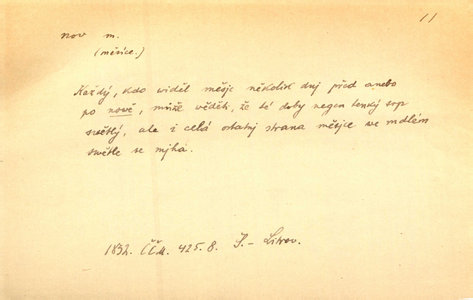 11
nov m.
(měsíce.)
Každý, kdo widěl měsjc několik dnj před anebo
po nowě, může wěděti, že té doby negen tenký srp
swětlý, ale i celá ostatnj strana měsjce we mdlém
swětle se mjhá.
1832. ČČM. 425. 8. J. –